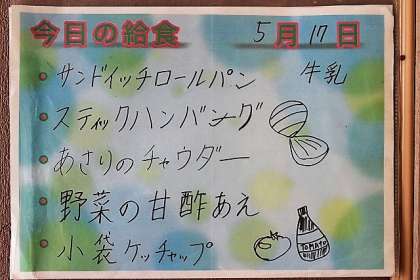 今日の給食 5月17日
・サンドイッチロールパン 牛乳
・スティックハンバーグ
・あさりのチャウダー
・野菜の甘酢あえ
・小袋ケチャップ
TOMATO